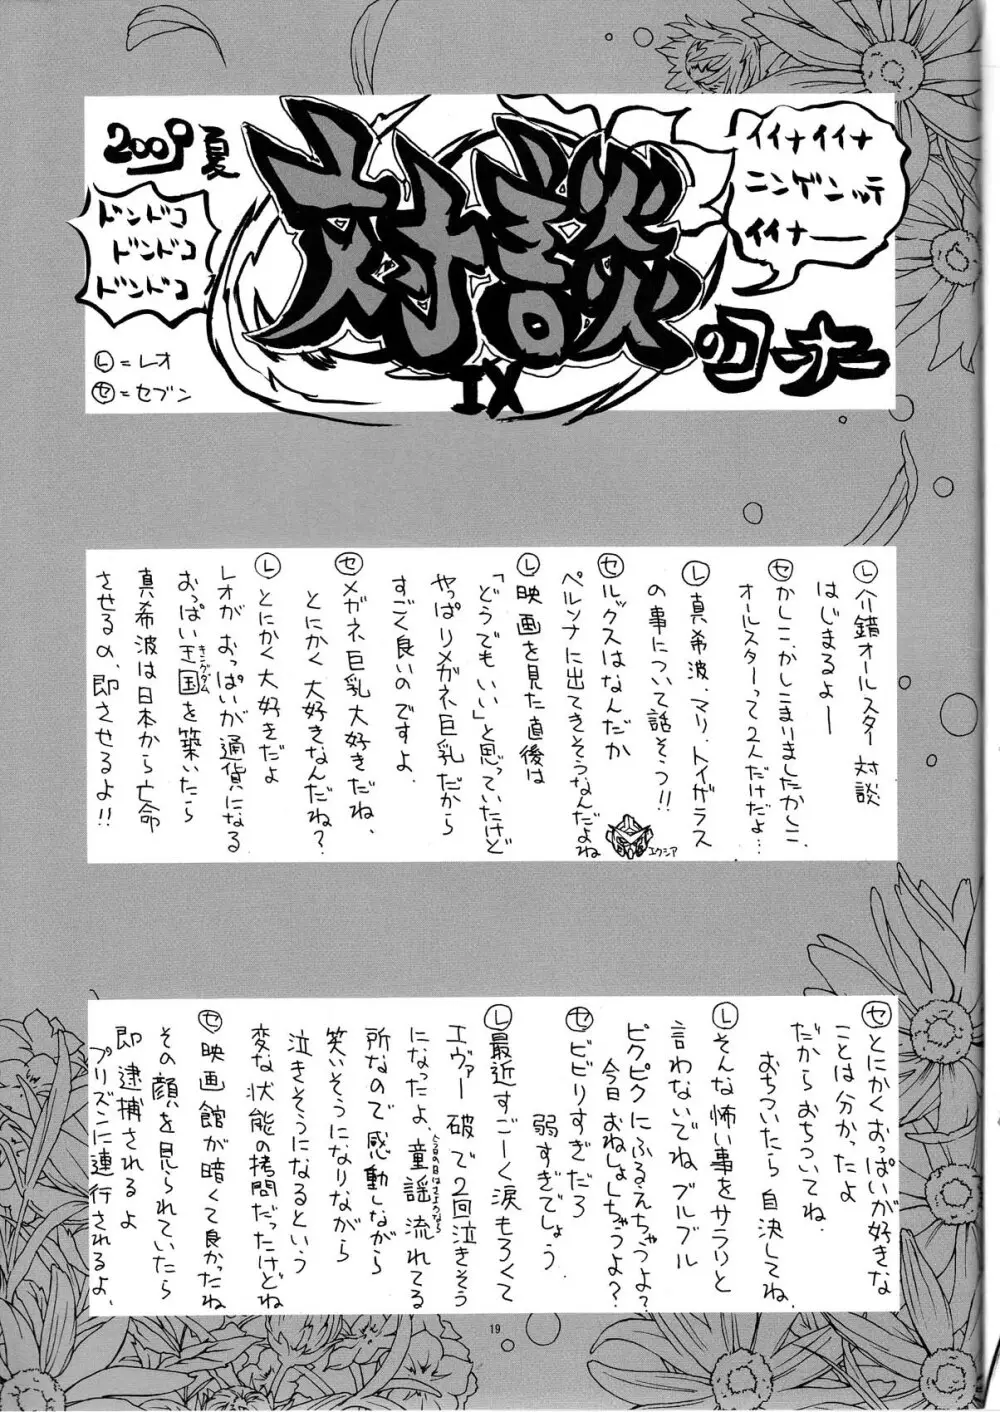 2009夏
対談
IX
のコーナー
イイナイイナ
ニンゲンッテ
イイナー
ドンドコ
ドンドコ
ドンドコ
Ⓛ=レオ
㋝=セブン
Ⓛ介錯オールスター対談
はじまるよー
㋝かしこ、かしこまりましたかしこ、
オールスターって2人だけだよ…
Ⓛ真希波、マリ、トイザラス
の事について話そう!!
㋝ルックスはなんだか
ペルソナに出てきそうなんだよね
エクシア
Ⓛ映画を見た直後は
「どうでもいい」と思っていたけど
やっぱりメガネ巨乳だから
すごく良いのですよ。
㋝メガネ巨乳大好きだね、
とにかく大好きなんだね?
Ⓛとにかく大好きだよ
レオがおっぱいが通貨になる
おっぱい王国を築いたら
キングダム
真希波は日本から亡命
させるの、即させるよ!!
㋝とにかくおっぱいが好きな
ことは分かったよ
だからおちついてね、
おちついたら自決してね、
Ⓛそんな怖い事をサラリと
言わないでね、ブルブル
ピクピクにふるえちゃうよ?
今日おねしょしちゃうよ?
㋝ビビりすぎだろ
弱すぎでしょう
Ⓛ最近すごーく涙もろくて
エヴァー破で2回泣きそう
になったよ、童謡流れてる
今日の日はさようなら
所なので感動しながら
笑いそうになりながら
泣きそうになるという
変な状態の拷問だったけどね
㋝映画館が暗くて良かったね
その顔を見られていたら
即逮捕されるよ
プリズンに連行されるよ、
19